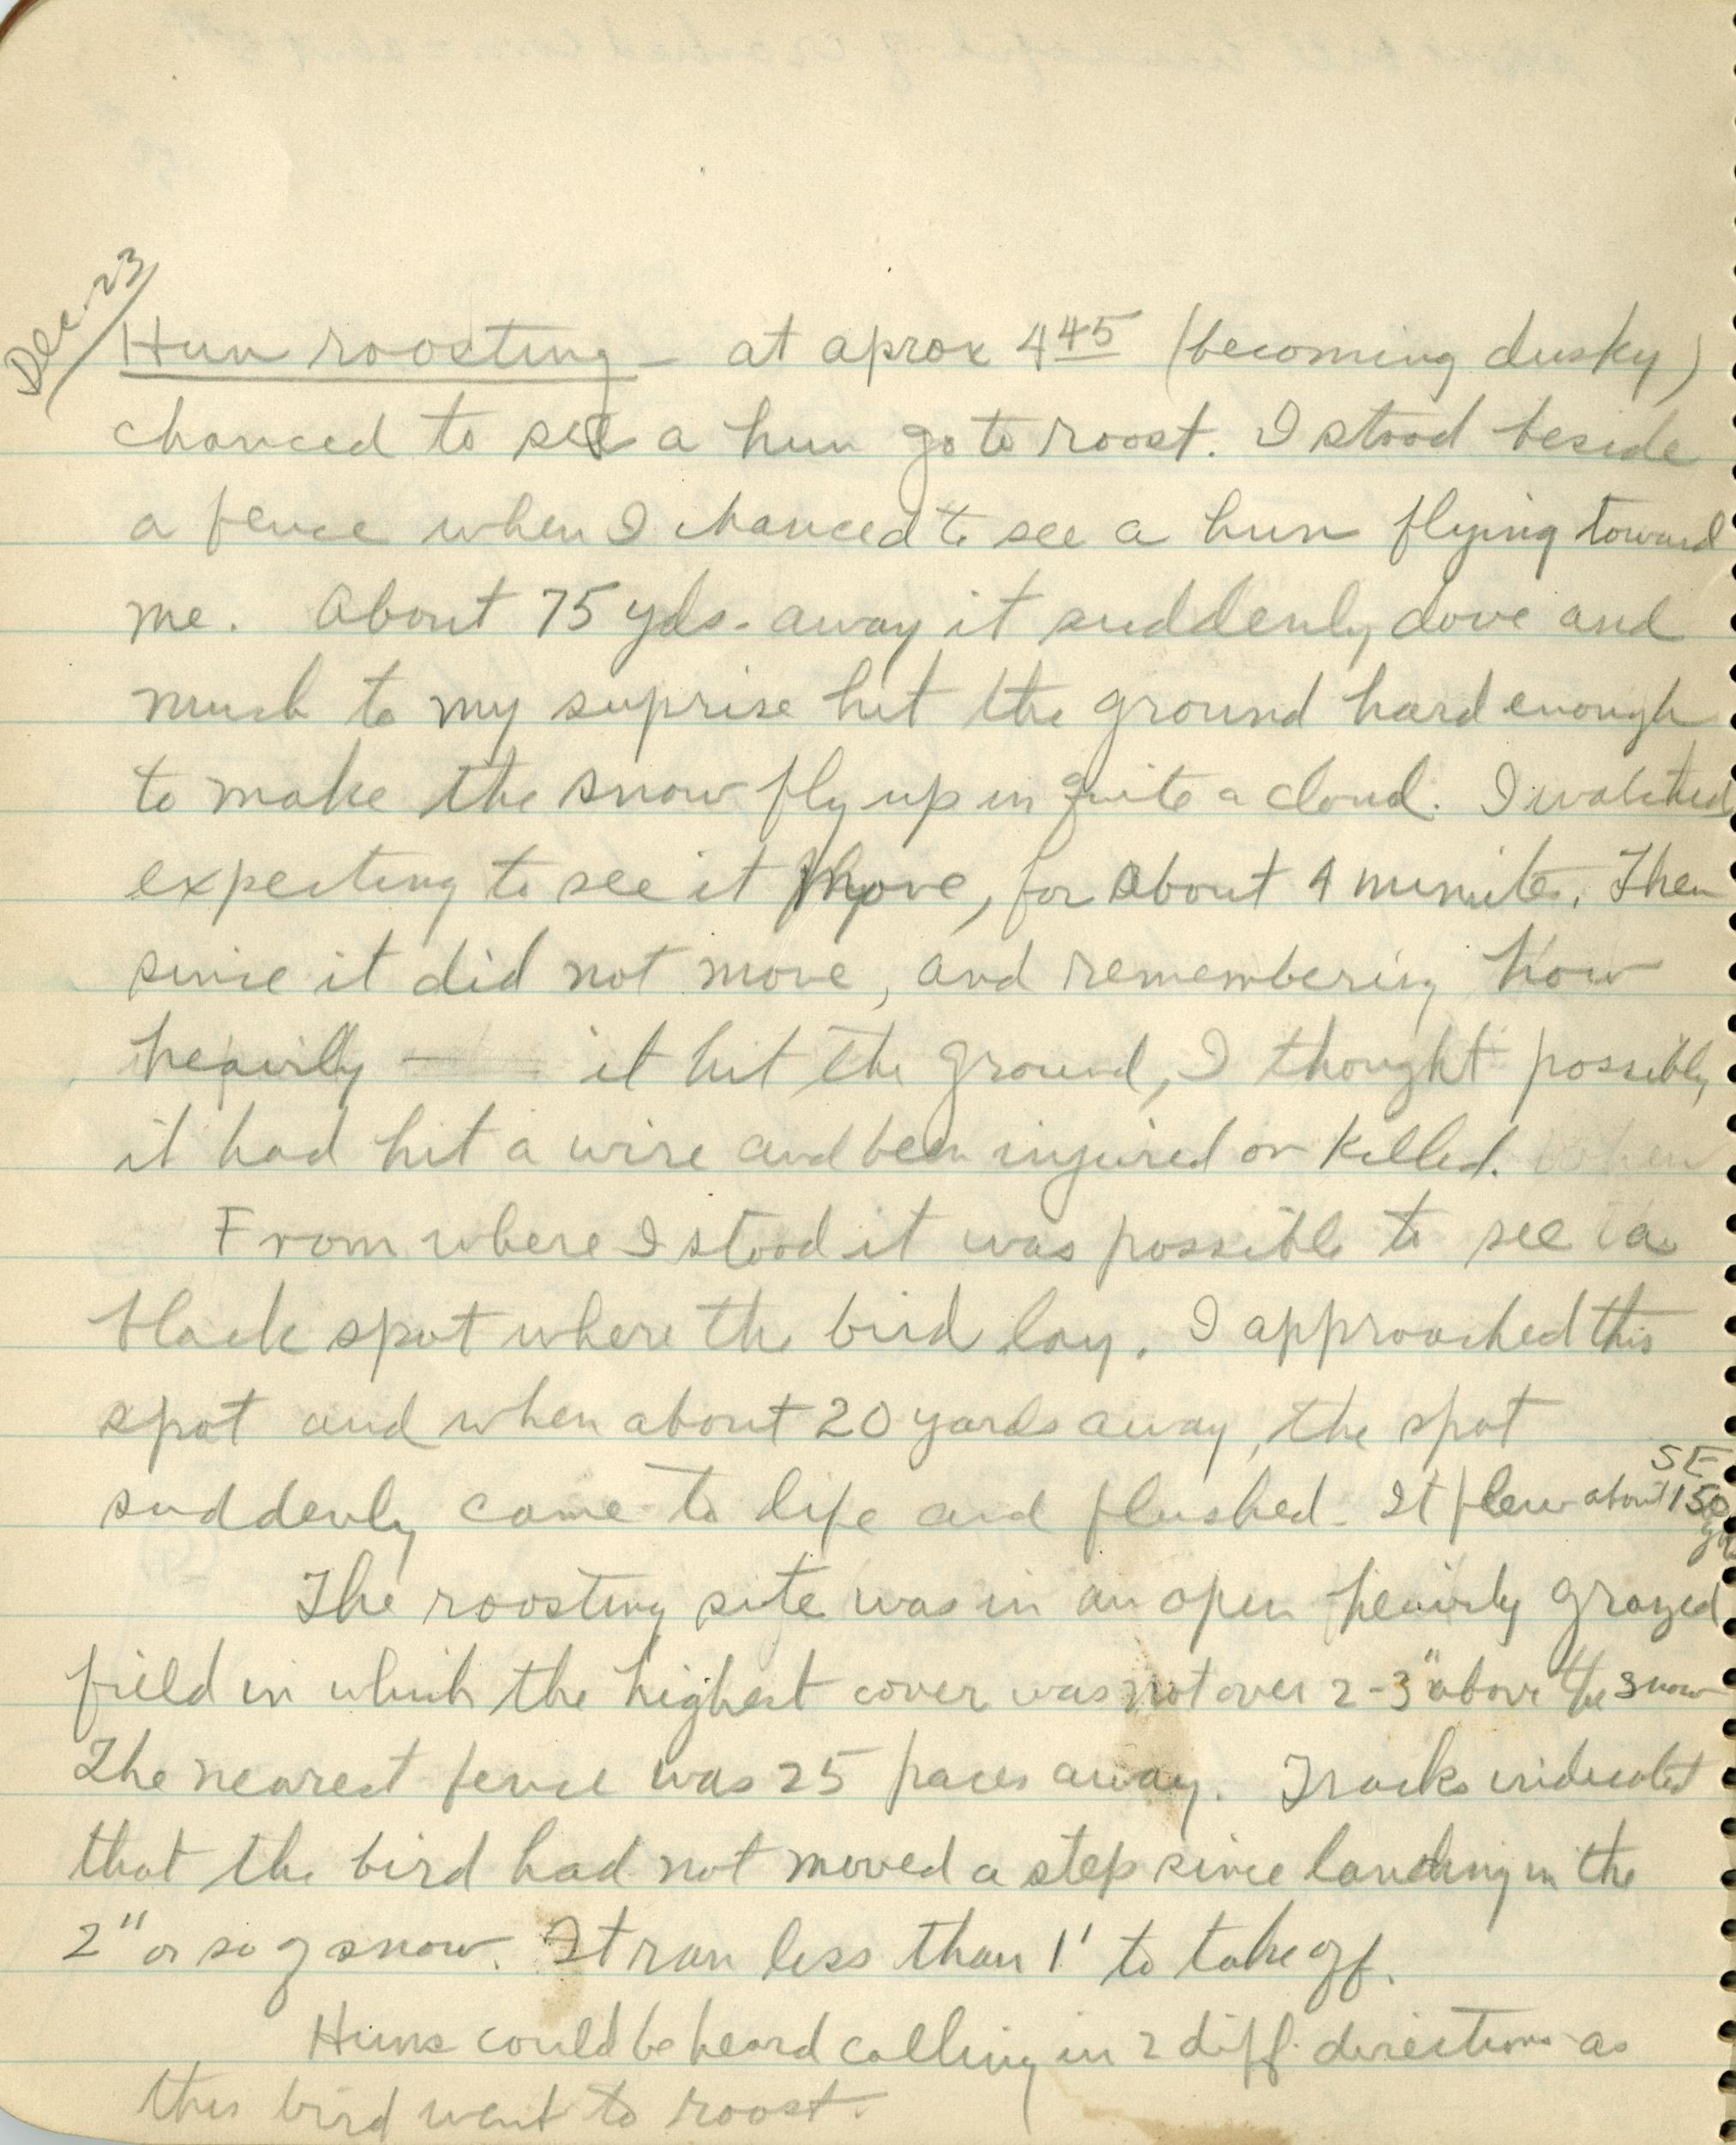 Dec. 23
Hun roosting - at aprox 4 45 (becoming dusky)
chanced to see a hun go to roost. I stood beside
a fence when I chanced to see a hun flying toward
me. About 75 yds. away it suddenly dove and
much to my suprise hit the ground hard enough
to make the snow fly up in quite a cloud. I watched
expecting to see it move, for about 4 minutes. Then
since it did not move, and remembering how
heavily — it hit the ground, I thought possibly
it had hit a wire and been injured or killed. when
From where I stood it was possible to see a
black spot where the bird lay. I approached this
spot and when about 20 yards away, the spot
suddenly came to life and flushed. It flew about 150 yds SE
The roosting site was in an open heavily grazed
field in which the highest cover was not over 2-3" above the snow
The nearest fence was 25 paces away. Tracks indicated
that the bird had not moved a step since landing in the
2" or so of snow. It ran less than 1' to take off.
Huns could be heard calling in 2 diff. directions as
this bird went to roost.